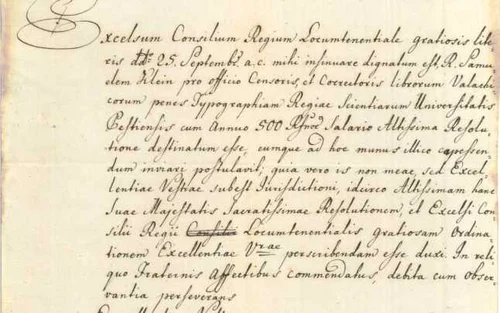 Excelsum Consilium Regium Locumtenentiale gratiosis lite-
ris ddto 25. Septembr. a.c. mihi insinuare dignatum est, R. Samu
elem Klein pro officio Censoris, et Correctoris librorum Valachi
corum penes Typographiam Regiae Scientiarum Universitatis
Pestiensis cum Annuo 500 Salario Altissima Resolu
tione destinatum esse, eumque ad hoc munus illico capessen
dum inviari postulavit; quia vero is non meae, sed Excel
lentiae Vestrae subest Jurisdictioni, idcirco Altissimam hanc
Suae Majestatis Sacratissimae Resolutionem, et Excelsi Con
silii Regii Locumtenentialis gratiosam Ordina
tionem Excellentiae Vrae perscribendam esse duxi. In reli
quo Fraternis Affectibus commendatus, debita cum obser
vantia perseverans